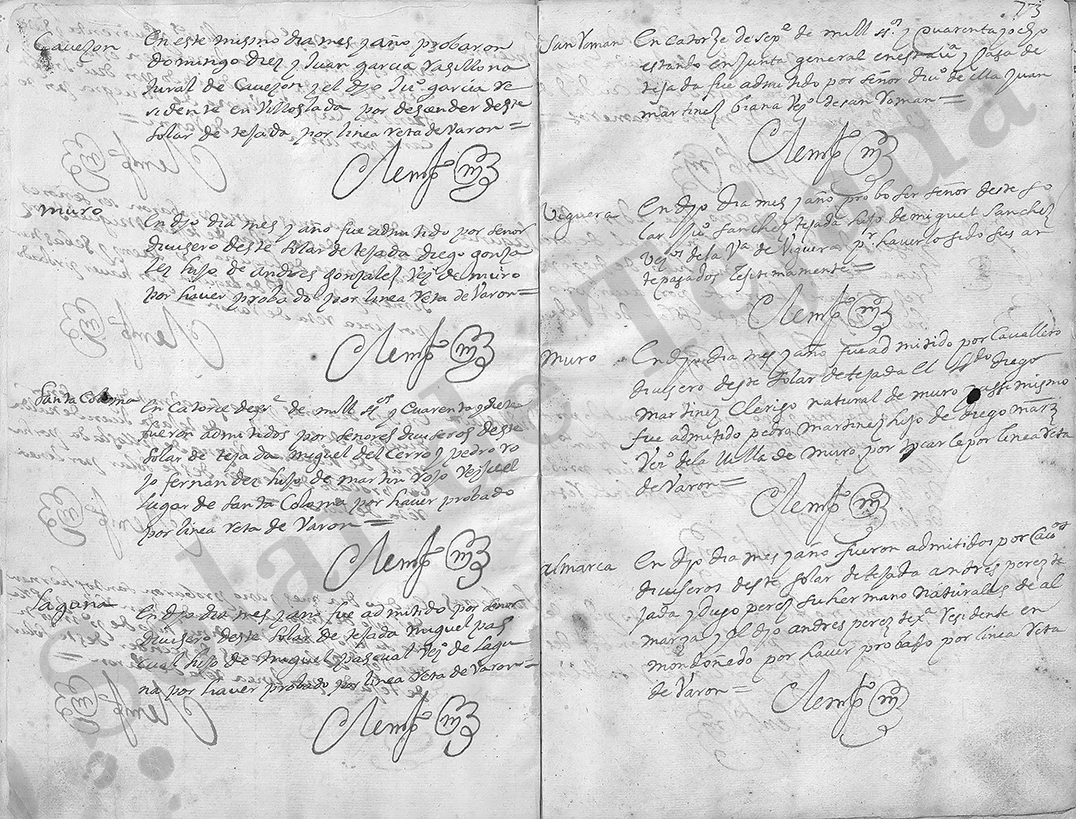 Cavezon
En este mismo dia mes y año probaron
domingo diez y Juan garcia Vasillo na
tural de Cavezon y el dho Juº garcia Re
sidente en Villoslada por descender deste
solar de tejada por linea reta de Varon=
Clemte
muro
En dho dia mes y año fue admitido por señor
divisero deste solar de tejada Diego gonza
lez hijo de andres gonzalez Vezº de muro
por haver probado por linea Reta de Varon=
Clemte
Santa Coloma
En catorce de de mill y Cuarenta y
fueron admitidos por señores diviseros deste
solar de tejada miguel del Cerro y pedro Ro
jo fernandez hijo de martin Rojo
lugar de santa Coloma por haver probado
por linea reta de Varon=
Clemte
laguna
En dho dia mes y año fue admitido por señor
divisero deste solar de tejada miguel pas
cual hijo de miguel pascual Vezº de lagu
na por haver probado por linea Reta de Varon=
Clemte
73
San Roman
En catorze de sepe de mill y quarenta y ocho
estando en junta general en esta y casa de
tejada fue admitido por señor de ella Juan
martinez Vezº de san Roman=
Clemte
Veguera
En dho dia mes y año probo ser señor deste so
lar sanchez tejada hijo de miguel Sanchez
Vezos de la Va de Viguera pr haverlo sido sus an
tepasados lejitimamente=
Clemte
muro
En dho dia mes y año fue admitido por Cavallero
divisero deste solar de tejada el Ldo Diego
martinez Clerigo natural de muro y assi mismo
fue admitido pedro martinez hijo de Diego
Vezº de la Villa de muro por por linea Reta
de Varon=
Clemte
almarca
En dho dia mes y año fueron admitidos por
diviseros deste solar de tejada andres perez te
jada y Diego perez su hermano Naturales de al
marza y el dho andres perez Residente en
mondoñedo por haver probado por linea Reta
de Varon=
Clemte
Solar de Tejada